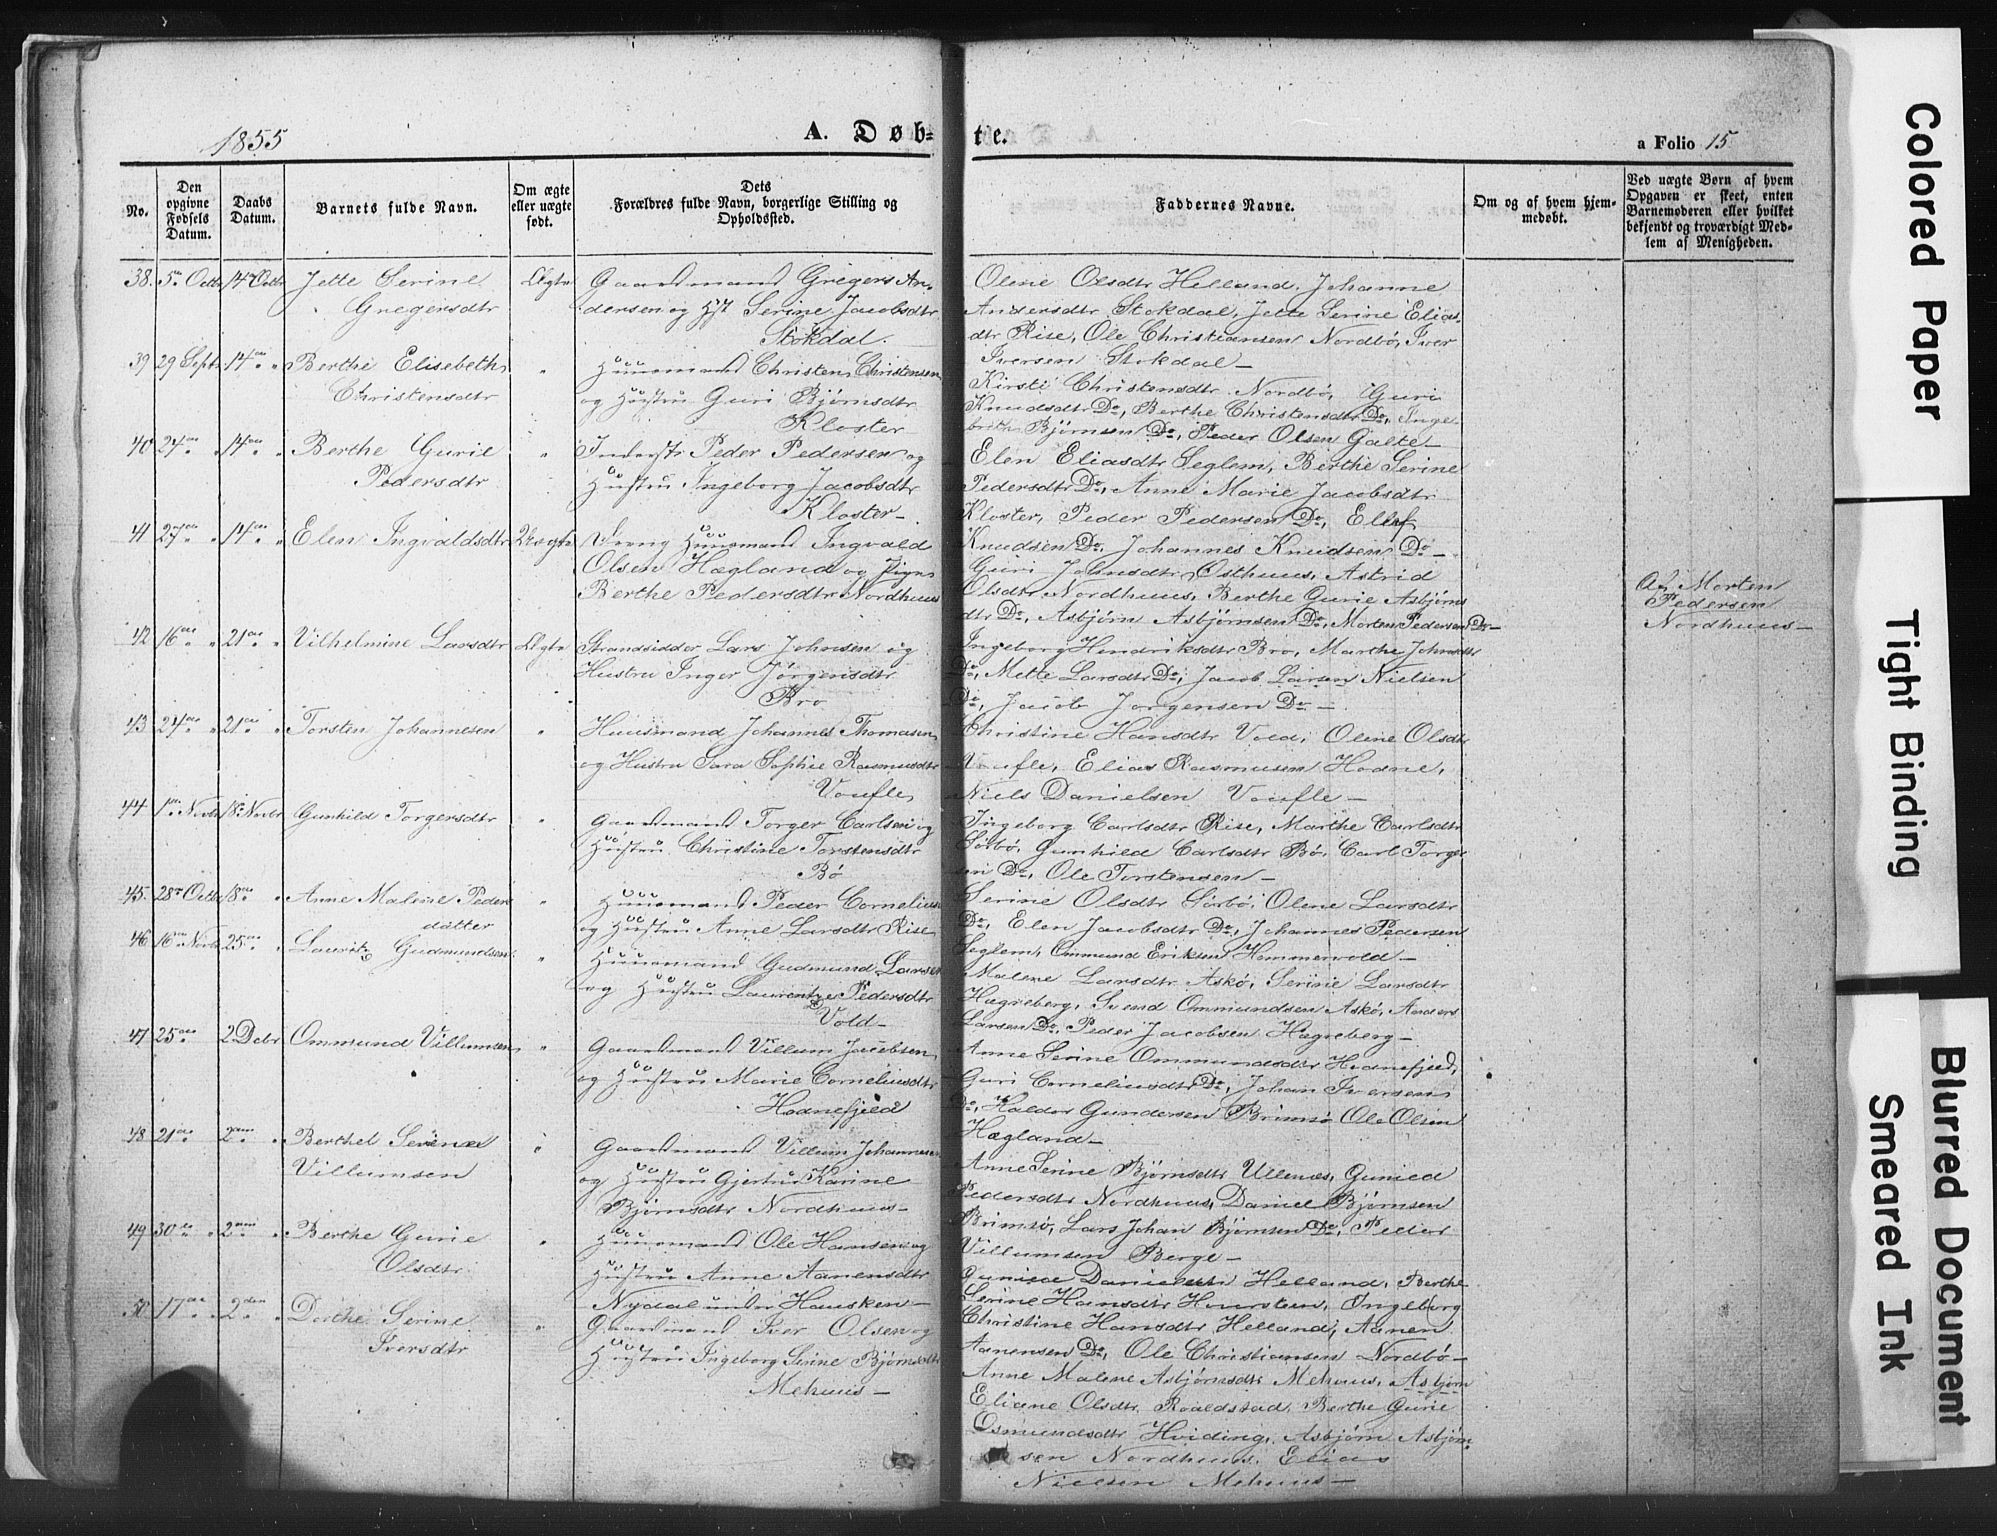 1855
A. Døb=
te.
a Folio 15
No.
Den opgivne Fødsels Datum.
Daabs Datum.
Barnets fulde Navn.
Om ægte eller uægte født.
Dets Forældres fulde Navn, borgerlige Stilling og Opholdssted.
Faddernes Navne.
Om og af hvem hjemmedøbt.
Ved uægte Børn af hvem Opgaven er skeet, enten Barnemoderen eller hvilket bekjendt og troværdigt Medlem af Menigheden.
38. 5 Octbr 14 Octbr Jette Serine Ægte Gaardmand Gregers An-
Gregersdtr dersen og Serine Jacobsdtr
Stokdal.
39 29 Septbr 14 " Berthe Elisabeth " Huusmand Christen Christensen
Christensdtr og Hustru Guri Bjørnsdtr
Kloster
40 24 " 14 " Berthe Gurie " Inderst Peder Pedersen og
Pedersdtr Hustru Ingeborg Jacobsdtr
Kloster
41 27 " 14 " Elen Ingvaldsdtr Uægte Huusmand Ingvald
Olsen Hægland og Pige
Berthe Pedersdtr Nordhuus
42 16 " 21 " Vilhelmine Larsdtr Ægte Strandsidder Lars Johnsen og
Hustru Inger Jørgensdtr
Bro
43 24 " 21 " Torsten Johannesen " Huusmand Johannes Thomasen
og Hustru Sara Sophie Rasmusdtr
Voufle
44 1 Novbr 18 Novbr Gunhild Torgersdtr " Gaardmand Torger Carlsen og
Hustru Christine Torstensdtr
Bø
45. 28 Octbr 18 " Anne Malene Peders " Huusmand Peder Cornelius
datter og Hustru Anne Larsdtr Rise
46 16 Novbr 25 " Lauritz Gudmundsen " Huusmand Gudmund Larsen
og Hustru Laurentze Pedersdtr
Vold
47 25 2 Debr Ommund Villumsen " Gaardmand Villum Jacobsen
og Hustru Marie Corneliusdtr
Hodnefjeld
48 21 2 " Berthel Serenæ " Gaardmand Villum Johannesen
Villumsen og Hustru Gjertrud Karine
Bjørnsdtr Nordhuus
49 30 " 2 " Berthe Gurie " Huusmand Ole Hansen og
Olsdtr Hustru Anne Aanensdtr
Nydal under Hausken
50 17 " 2 " Dorthe Serine " Gaardmand Iver Olsen og
Iversdtr Hustru Ingeborg Serine Bjørnsdtr
Mehuus
Olene Olsdtr Helland, Johanne
Andersdtr Stokdal, Jette Serine Elias-
dtr Rise, Ole Christiansen Nordbø, Iver
Iversen Stokdal
Kirsti Christensdtr Nordbø, Guri
Knudsdtr Do, Berthe Christensdtr Do, Inge-
brith Bjørnsen Do, Peder Olsen Galte
Elen Eliasdtr Seglem, Berthe Serine
Pedersdtr Do, Anne Marie Jacobsdtr
Kloster, Peder Pedersen Do, Ellef
Knudsen Do, Johannes Knudsen Do
Guri Johnsdtr Østhuus, Astrid
Olsdtr Nordhuus, Berthe Gurie Asbjørns
dtr Do, Asbjørn Asbjørnsen Do, Morten Pedersen Do
Ingeborg Hendriksdtr Bro, Marthe Johnsdtr
Do, Mette Larsdtr Do, Jacob Larsen Nielsen
Do, Jacob Jørgensen Do
Christine Hansdtr Vold, Olene Olsdtr
Voufle, Elias Rasmusen Hodne,
Niels Danielsen Voufle
Ingeborg Carlsdtr Rise, Marthe Carlsdtr
Sørbø, Gunhild Carlsdtr Bø, Carl Torger
sen Do, Ole Torstensen
Serine Olsdtr Sørbø, Olene Larsdtr
Do, Elen Jacobsdtr Do, Johannes Pedersen
Seglem, Ommund Eriksen Hommervold
Malene Larsdtr Askø, Serine Larsdtr
Hægreberg, Svend Ommundsen Askø, Anders
Larsen Do, Peder Jacobsen Hægreberg
Anne Serine Ommundsdtr Hodnefjeld,
Guri Corneliusdtr Do, Johan Iversen
Do, Haldor Gundersen Brimsø Ole Olsen
Hægland
Anne Serine Bjørnsdtr Ullenæs, Gunild
Pedersdtr Nordhuus, Daniel Bjørnsen
Brimsø, Lars Johan Bjørnsen Do, Peder
Villumsen Berge
Gunild Danielsdtr Helland, Berthe
Serine Hansdtr Hourstein, Ingeborg
Christine Hansdtr Helland, Aanen
Aanensen Do, Ole Christiansen Nordbø
Anne Malene Asbjørnsdtr Mehuus, Asbjørn
Eliane Olsdtr Roaldstad, Berthe Gurie
Osmundsdtr Hviding, Asbjørn Asbjørn-
sen Nordhuus, Elias
Nielsen Mehuus
Af Morten
Pedersen
Nordhuus
Colored Paper
Tight Binding
Blurred Document
Smeared Ink